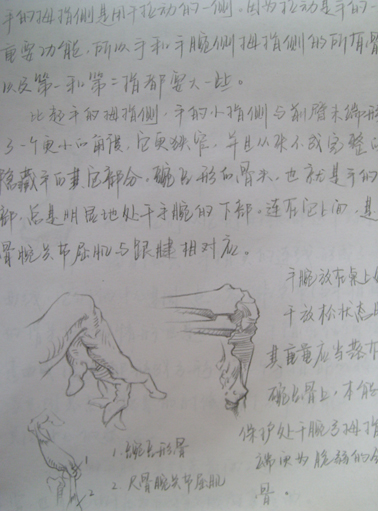 手的拇指侧是用于拉动的一侧。因为拉动是手的一
重要功能,所以手和手腕侧拇指侧的所有骨
以及第一和第二指都要大一些。
比起手的拇指侧,手的小指侧与前臂末端形
了一个更小的角度。它更狭窄,并且从来不或完整
隐藏手的其它部分。豌豆形的骨头,也就是手的
部,总是明显地处于手腕的下部。连在它上面,是
骨腕关节屈肌与跟腱相对应。
手腕放在桌上
于放松状态
其重量应当落在
豌豆骨上,本能
保护处于腕弓拇指
端更为脆弱的
骨。
1. 豌豆形骨
2. 尺骨腕关节屈肌
1
2